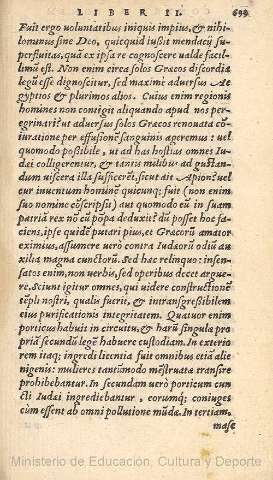 LIBER II. 699
Fuit ergo voluntatibus iniquis impius, & nihi-
lominus sine Deo, quicquid iussit mendacij su-
perfluitas, quã ex ipsa re cognoscere ualde facil-
limũ est. Non enim circa solos Græcos discordia
legũ esse dignoscitur, sed maximè aduersus Ae
gyptios & plurimos alios. Cuius enim regionis
homines non contigit aliquando apud nos pe-
regrinari? ut aduersus solos Græcos renouata cõ
iuratione per effusionẽ sanguinis ageremus: uel
quomodo posibile, ut ad has hostias omnes Iu-
dæi colligerentur, & tantis milibus ad gustan-
dum uiscera illa sufficeret, sicut ait Apion? uel
cur inuentum hominẽ quicunq; fuit (non enim
suo nomine cõscripsit) aut quomodo eũ in suam
patriã rex nõ cũ põpa deduxit? dũ posset hoc fa
ciens, ipse quidẽ putari pius, et Græcorũ amator
eximius, assumere uerò contra Iudæorũ odiũ au
xilia magna cunctorũ. Sed hæc relinquo: insen-
satos enim, non uerbis, sed operibus decet argue-
re. Sciunt igitur omnes, qui uidere constructionẽ
tẽpli nostri, qualis fuerit, & intransgressibilem
eius purificationis integritatem. Quatuor enim
porticus habuit in circuitu, & harũ singulæ pro
priã secundũ legẽ habuere custodiam. In exterio
rem itaq; ingredi licentia fuit omnibus etiã alie
nigenis: mulieres tantũmodo mẽstruatæ transire
prohibebantur. In secundam uerò porticum cun
cti Iudæi ingrediebantur, eorumq; coniuges
cum essent ab omni pollutione mũdæ. In tertiam,
masc
Ministerio de Educación, Cultura y Deporte